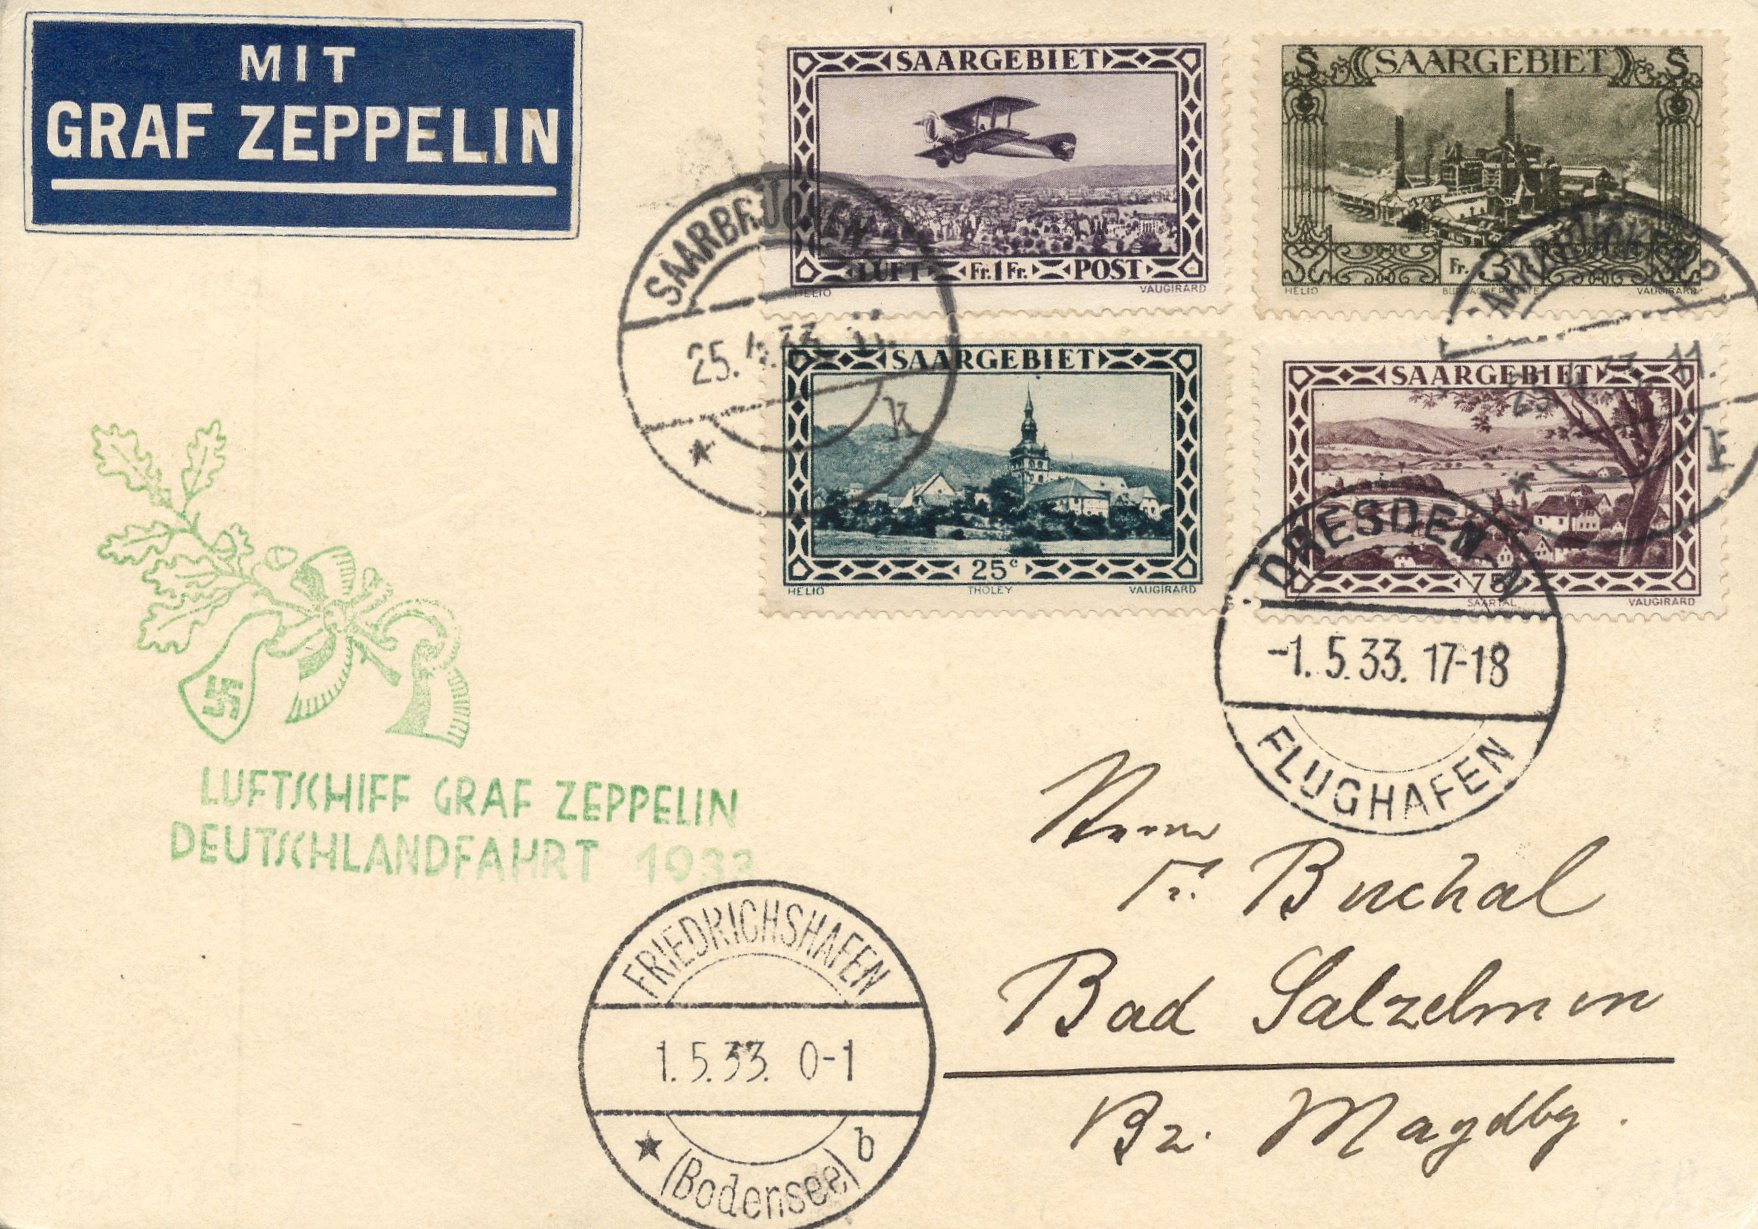 MIT
GRAF ZEPPELIN
SAARGEBIET
LUFT Fr. 1 Fr. POST
HELIO VAUGIRARD
S SAARGEBIET S
Fr.
HELIO VAUGIRARD
SAARBRÜCKEN 2
25.4.33 11.
k
SAARBRÜCKEN 2
25.4.33 11.
k
SAARGEBIET
25c
HELIO THOLEY VAUGIRARD
SAARGEBIET
75
SAARTAL VAUGIRARD
DRESDEN-N
-1.5.33. 17-18
FLUGHAFEN
LUFTSCHIFF GRAF ZEPPELIN
DEUTSCHLANDFAHRT 1933
FRIEDRICHSHAFEN
1.5.33. 0-1
b
(Bodensee)
Herrn
Fr. Buchal
Bad Salzelmen
Bz. Magdbg.